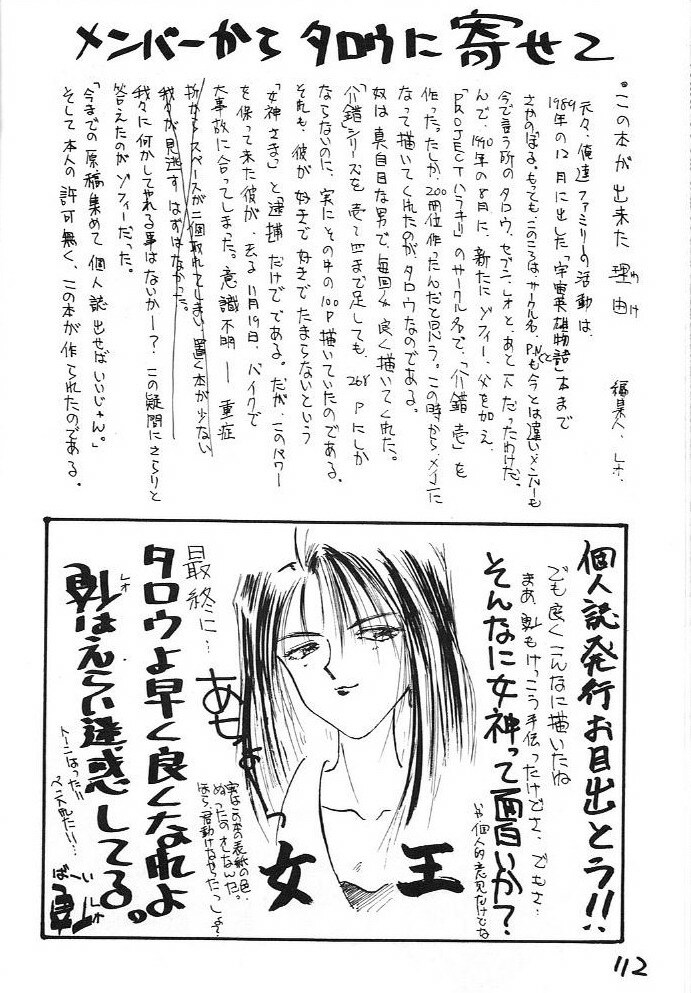 メンバーから タロウに寄せて
。この本が出来た理由
わけ
編集人、レオ
元々、俺達ファミリーの活動は、
1989年の12月に出した「宇宙英雄物語」本まで
さかのぼる。もっとも、このころは、サークル名、P.Nも今とは違いメンバーも
今で言う所のタロウ、セブン、レオと、あと一人だったわけだ。
んで、'90年の8月に、新たにゾフィー、父を加え、
「PROJECTハラキリ」のサークル名で、「介錯 壱」を
作った。たしか、200冊位作ったんだと思う。この時からメインに
なって描いてくれたのが、タロウなのである。
奴は真面目な男で、毎回々良く描いてくれた。
「介錯」シリーズを壱〜四まで足しても、268Pにしか
ならないのに、実にその中の100P描いていたのである。
それも、彼が好きで好きでたまらないという
「女神さま」と「逮捕」だけでである。だが、このパワー
を保って来た彼が、去る11月19日、バイクで
大事故に合ってしまった。意識不明——重症
折からスペースが二個取れてしまい、置く本が少ない
我々が見逃すはずはなかった。
我々に何かしてやれる事はないかー?、この疑問にさらりと
答えたのがゾフィーだった。
「今までの原稿集めて個人誌出せばいいじゃん。」
そして本人の許可無く、この本が作られたのである。
個人誌発行お目出とう!!
でも良くこんなに描いたね
まあ、私もけっこう手伝ったけどさ、でもさ…
そんなに女神って面白いか?
いや、個人的意見なだけどな
女王
最終に…
あせっ
タロウよ早く良くなれよ
レオ
私はえらい迷惑してる。
実はこの本の表紙の色
ぬったのオレなんだ。
ほら、君動けなかったっしょ?
トーンはったい!!
ペン入れたい!!…
ばーい
レオ
112